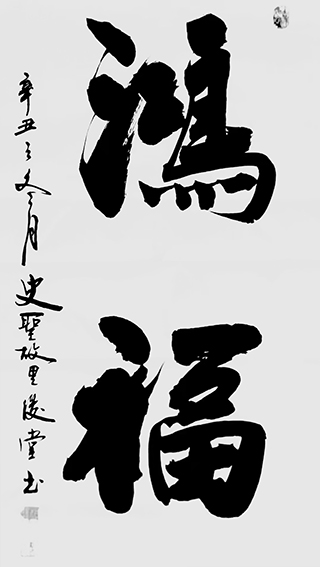 鴻福
辛丑之冬月史聖故里堂书